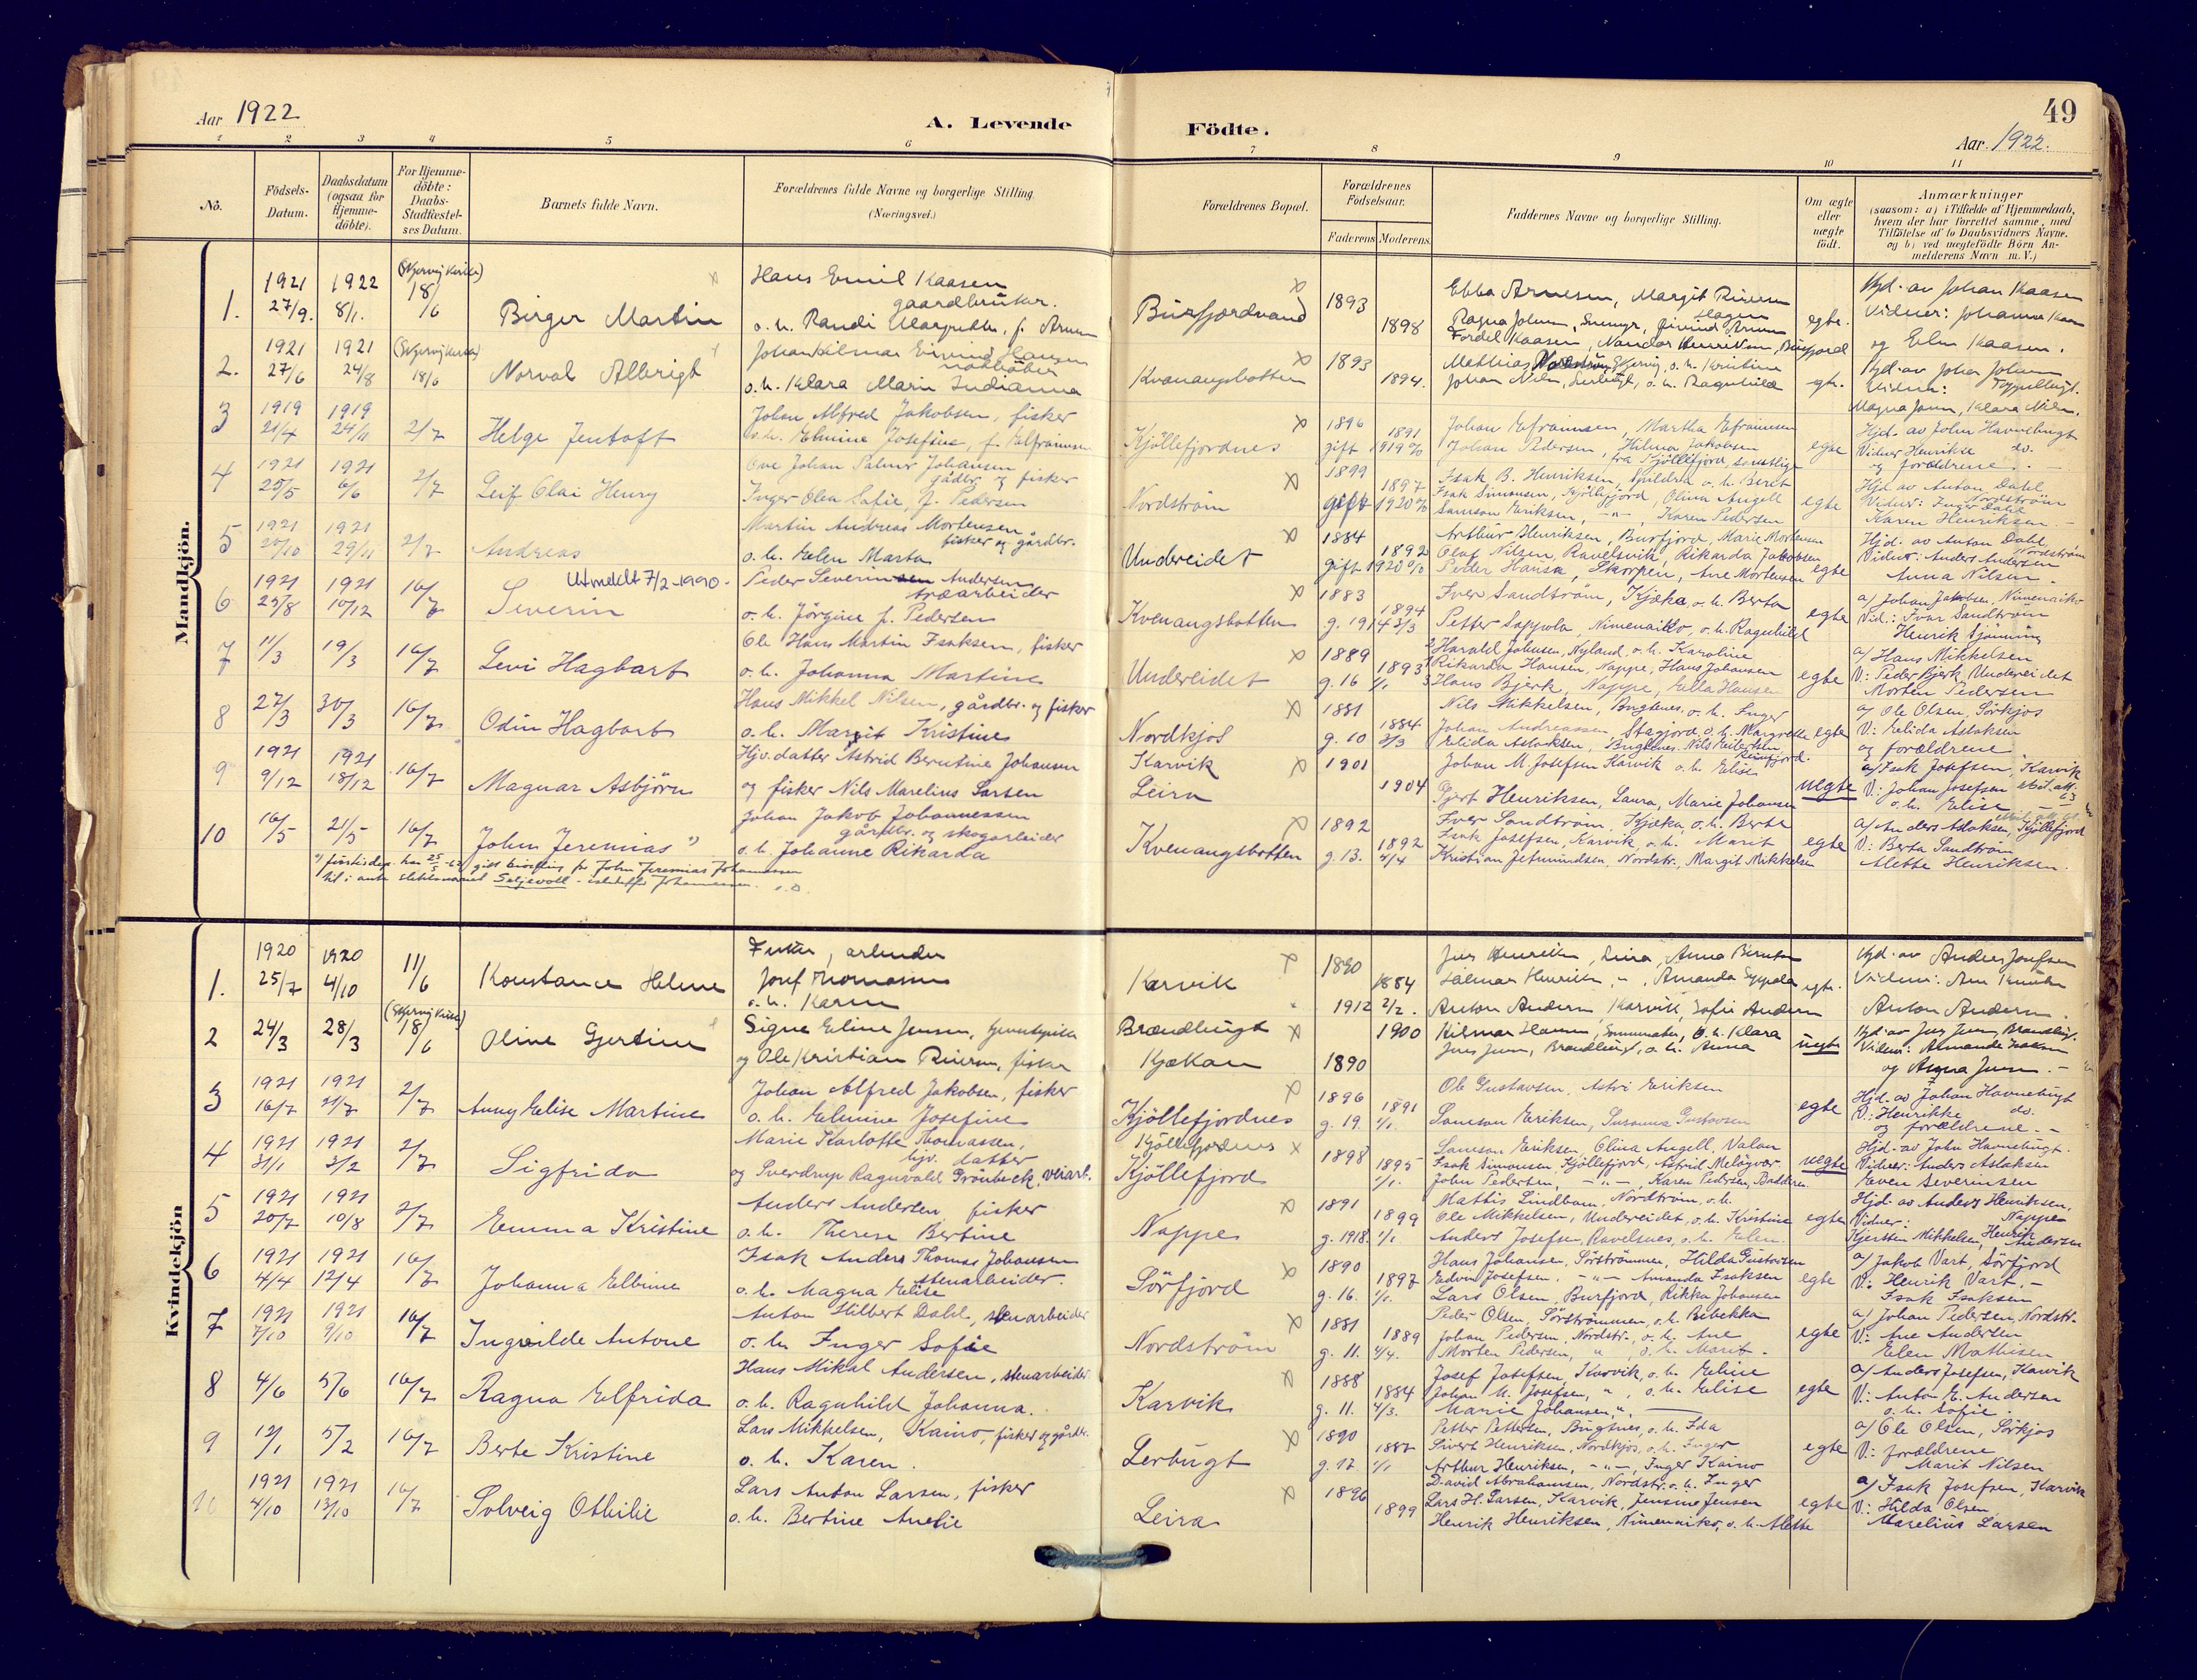 49
Aar 1922
A. Levende
Födte.
Aar 1922.
1 2 3 4 5 6 7 8 9 10 11
No.
Födsels-
Datum.
Daabsdatum
(ogsaa for
Hjemme-
döbte).
For Hjemme-
döbte:
Daabs-
Stadfæstel-
ses Datum.
Barnets fulde Navn.
Forældrenes fulde Navne og borgerlige Stilling
(Næringsvei.)
Forældrenes Bopæl.
Forældrenes
Födselsaar.
Faderens Moderens
Faddernes Navne og borgerlige Stilling.
Om ægte
eller
uægte
födt.
Anmærkninger
(saasom: a) i Tilfælde af Hjemmedaab,
hvem der har forrettet samme, med
Tilföielse af to Daabsvidners Navne.
og b) ved uægtefödte Börn An-
melderens Navn m. V.)
Mandkjön.
1. 1921 27/9. 1922 8/1. (Skjervøy Kirke) 18/6
Birger Martin
Hans Emil Kaasen
gaardbruker.
o. h. Randi
Burfjordvand
1893 1898
Ebba Arnesen, Margit
Ragna
Kaasen, Henriksen, Burfjord
egte.
Hjd. av Johan Kaasen
Vidner: Johanna
og Elen Kaasen.
2. 1921 27/6 1921 24/8 (Skjervøy Kirke) 18/6
Norval Albrigt
Johan Hilmar Eivind Hansen
o. h. Klara Marie Indianna
Kvænangsbotten
1893 1894.
Mathias Skjervøy, o. h. Kristine
Johan o. h. Ragnhild
egte.
Hjd. av Johan
Vidner:
Magna Klara
3 1919 21/4 1919 24/11 2/7
Helge Jentoft
Johan Alfred Jakobsen, fisker
o. h. Elmine Josefine, f. Efraimsen
Kjöllefjordnes
1896 1891
gift 1919
Johan Efraimsen, Martha Efraimsen
Johan Pedersen, Hilma Jakobsen
fra Kjöllefjord, samtlige
egte
Hjd. av John Havnebugt
Vidner Henrikke do.
og forældrene.
4 1921 25/5 1921 6/6 2/7
Leif Olai Henry
Ove Johan Palmr Johansen
gårdbr og fisker
Inger Olea Sofie, f. Pedersen
Nordström
1899 1897
gift 1920
Isak B. Henriksen, Spildra o. h. Beret
Isak Simonsen, Kjöllefjord, Olina Angell
Samson Eriksen, -"-, Karen Pedersen
egte
Hjd av Anton Dahl
Nordström
Vidner: Inger Dahl
Karen Henriksen.
5 1921 20/10 1921 29/11 2/7
Andreas
Martin Andreas Mortensen
fisker og gårdbr.
o. h. Elen Marta
Undereidet
1884 1892
gift 1920
Arthur Henriksen, Burfjord, Marie Mortensen
Olaf Nilsen, Ravelsvik, Rikarda Jakobsen
Peder Hansa, Skorpen, Ane Mortensen
egte
Hjd. av Anton Dahl
Nordström
Vidner: Anders Andersen
Anna Nilsen.
6 1921 25/8 1921 10/12 16/7
Utmeldt 7/2-1990-
Severin
Peder Severin Andersen
træarbeider
o. h. Jörgine f. Pedersen
Kvenangsbotten
1883 1894
g. 1914 3/3
Iver Sandtröm, Kjækan, o. h. Berta
Petter Sappola, Nimenaiko, o. h. Ragnhild
egte
a) Johan Jakobsen, Nimenaiko
Vid.: Ivar Sandtröm
Henrik Sjönning
7 11/3 19/3 16/7
Levi Hagbart
Ole Hans Martin Isaksen, fisker
o. h. Johanna Martine
Undereidet
1889 1893
g. 16 1/1
Harald Johnsen, Nyland, o. h. Karoline
Rikarda Hansen, Nappe, Hans Johansen
Hans Bjerk, Nappe, Ella Hansen
egte
a) Hans Mikkelsen
V: Peder Bjerk, Undereidet
Morten Pedersen
8 27/3 30/3 16/7
Odin Hagbart
Hans Mikkel Nilsen, gårdbr. og fisker
o. h. Margit Kristine
Nordkjos
1881 1884
g. 10 3/3
Nils Mikkelsen, Bugtnes, o. h. Inger
Johan Andreassen, Stagjord, o. h. Margrethe
Elida Aslaksen, Bugtnes, Nils Eilertsen
egte
a) Ole Olsen, Sörkjos
V: Elida Aslaksen
og forældrene
9 1921 9/12 1921 18/12 16/7
Magnar Asbjörn
Hjv. datter Astrid Berntine Johansen
og fisker Nils Marelius Larsen
Karvik
Leira
1901 1904
Johan M. Josefsen Karvik o. h. Elise
Gjert Henriksen, Laura, Marie Johansen
uegte
a) Isak Josefsen, Karvik
V: Johan Josefsen
o. h. Elise
10 16/5 21/5 16/7
John Jeremias
Johan Jakob Johannessen
gårdbr. og skogarbeider
o. h. Johanne Rikarda
Kvenangsbotten
1892 1892
g. 13. 4/4
Iver Sandtröm, Kjækan, o. h. Berta
Isak Josefsen, Karvik, o. h. Marit
Kristian Jetmundsen, Nordstr., Margit Mikkelsen
egte
a) Anders Aslaksen, Kjöllefjord
V: Berta Sandtröm
Alette Henriksen.
for John Jeremias Johannessen
til å anta slektsnavnet Seljevoll - istedetfor Johannessen.
Kvindekjön
1. 1920 25/7 1920 4/10 11/6
Konstance Helene
Fisker, arbeider
Josef Thomassen
o. h. Karen
Karvik
1890 1884
1912 2/2.
Jens Henriksen, Leira, Anna
Hilmar Henriksen -"-, Amanda Seppola
Anton Andersen Karvik, Sofie Andersen
egte.
Hjd. av Anders Josefsen
Vidner: Ane
Anton Andersen.
2 24/3 28/3 (Skjervøy Kirke) 18/6
Oline Gjertine
Signe Eline Jensen,
og Ole Kristian fisker
Brændbugt
Kjækan
1900
1890
Hilmar Hansen, o. h. Klara
Jens Jensen, Brændbugt, o. h. Anna
uegte
Hjd av Jens Jensen, Brændbugt.
Vidner: Amanda Isaksen
og Jensen.-
3 1921 16/7 1921 21/7 2/7
Anny Elise Martine
Johan Alfred Jakobsen, fisker
o. h. Elmine Josefine
Kjöllefjordnes
1896 1891
g. 19. 1/1.
Ole Gustavsen, Astri Eriksen
Samson Eriksen, Susanna Gustavsen
egte
Hjd. av Johan Havnebugt
V.: Henrikke do.
og forældrene.-
4 1921 31/1 1921 3/2 2/7
Sigfrida
Marie Karlotte Thomassen,
hjv. datter
og Sverdrup Ragnvald Grönbeck, veiarb.
Kjöllefjordnes
Kjöllefjord
1898 1895
1/1.
Samson Eriksen, Olina Angell, Valan
Isak Simonsen, Kjöllefjord, Astrid Melögver
John Pedersen, -"-, Karen Pedersen, Badderen
uegte
Hjd. av John Havnebugt.
Vidner: Anders Aslaksen
Even Severinsen
5 1921 20/7 1921 10/8 2/7
Emma Kristine
Anders Andersen fisker
o. h. Therese Bertine
Nappe
1891 1899
g. 1918. 1/1
Mattis Lindbom, Nordtröm, o. h.
Ole Mikkelsen, Undereidet, o. h. Kristine
Anders Josefsen, Ravelsnes, o. h. Elen
egte
Hjd. av Anders Henriksen,
Nappe
Vidner:
Kjersten Mikkelsen, Henrik Andersen
6 1921 4/4 1921 12/4 16/7
Johanna Elbine
Isak Anders Thomas Johansen
stenarbeider.
o. h. Magna Elise
Sörfjord
1890 1897
g. 16. 1/1.
Hans Johansen, Sörströmmen, Hilda Gustavsen
Edvin Josefsen, -"- Amanda Isaksen
Lars Olsen, Burfjord, Rikka Johansen
egte
a) Jakob Vart, Sörfjord
V: Henrik Vart.-
Isak Isaksen
7 1921 7/10 1921 9/10 16/7
Ingvilde Antone
Anton Hilbert Dahl, stenarbeider
o. h. Inger Sofie
Nordström
1881 1889
g. 11. 4/4.
Peder Olsen, Sörströmmen, o. h. Rebekka
Johan Pedersen, Nordstr., o. h. Ane
Morten Pedersen, " o. h. Marit-
egte
a) Johan Pedersen, Nordstr.
V: Ane Andersen
Elen Mathisen
8 4/6 5/6 16/7
Ragna Elfrida
Hans Mikal Andersen, stenarbeider
o. h. Ragnhild Johanna.
Karvik
1888 1884
g. 11. 4/3.
Josef Josefsen, Karvik, o. h. Eline
Johan M. Josefsen, ", o. h. Elise
Marie Johansen, "
egte
a) Anders Josefsen, Karvik
V: Anton E. Andersen
o. h. Sofie.
9 12/1 5/2 16/7
Berte Kristine
Lars Mikkelsen, Kaino, fisker og gårdbr.
o. h. Karen.
Lerbugt
1890 1887
g. 17. 1/1
Petter Pettersen, Bugtnes, o. h. Ida
Sivert Henriksen, Nordkjos, o. h. Inger
Arthur Henriksen, -"-, Inger Kaino
egte
a) Ole Olsen, Sörkjos
V: forældrene
Marit Nilsen
10 1921 4/10 1921 13/10 16/7
Solveig Othilie
Lars Anton Larsen, fisker
o. h. Bertine Amelie
Leira
1896 1899
David Abrahamsen, Nordstr. o. h. Inger
Lars H. Larsen, Karvik, Jensine Jensen
Henrik Henriksen, Nimenaiko, o. h. Alette
egte
a) Isak Josefsen, Karvik
V: Hilda Olsen
Marelius Larsen